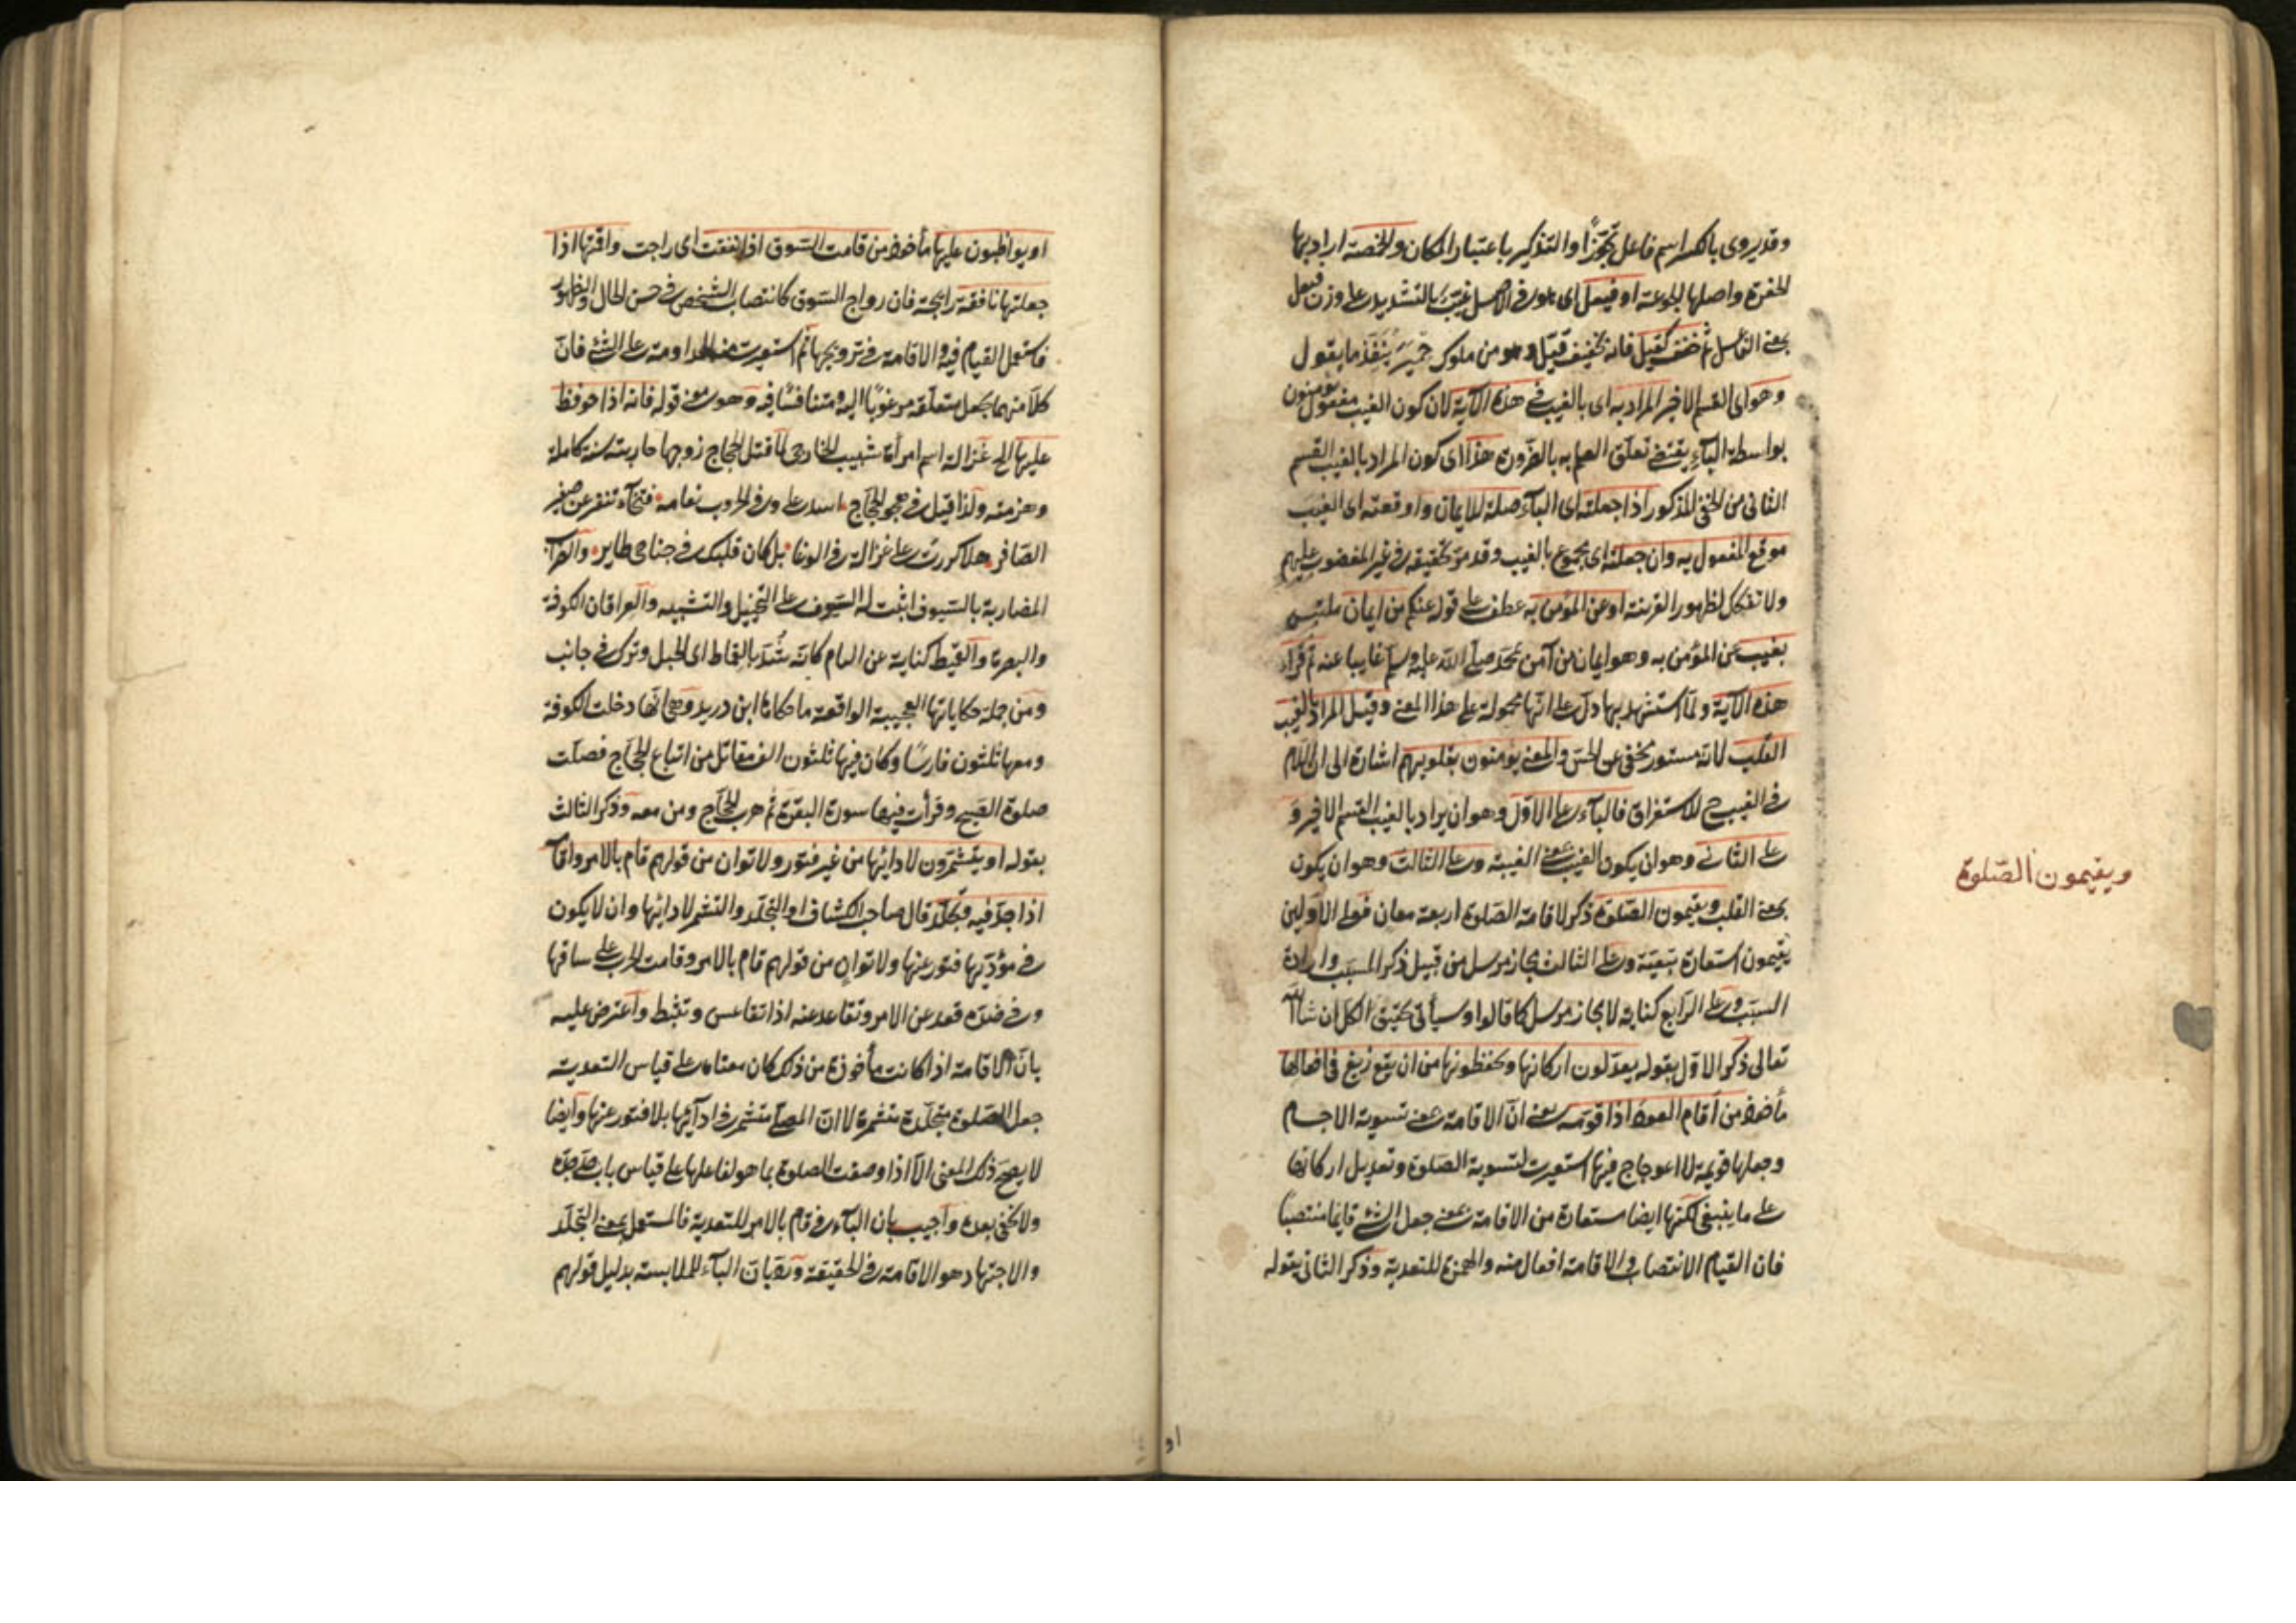 وقد يروى بالكسر اسم فاعل تجوّزا والتذكير باعتبار المكان والخمصة اراد بها
الحفرة واصلها الجوعة او فيعل اى هو فى الاصل غيّب بالتشديد على وزن فيعل
بمعنى الفاعل ثم خفف كقيل فانه تخفيف قيّل وهو من ملوك حمير ينفذ ما يقول
وهو اى القسم الاخير المراد به اى بالغيب فى هذه الآية لان كون الغيب مفعول يؤمنون
بواسطة البآء يقتضى تعلق العلم به بالضرورة هذا اى كون المراد بالغيب القسم
الثانى من الخفى المذكور اذا جعلته اى البآء صلة للايمان واوقعته اى الغيب
موقع المفعول به وان جعلته اى مجموع بالغيب وقد مرّ تحقيقه فى غير المغضوب عليهم
ولا تفكل لظهور القرينة او عن المؤمن به عطف على قوله عنكم من ايمان ملتبس
بغيب عن المؤمن به وهو ايمان من آمن بمحمد صلى الله عليه وسلم غايبا عنه ثم قرأ
هذه الآية ولمّا استشهد بها دلّ على انّها محمولة على هذا المعنى وقيل المراد بالغيب
القلب لانه مستور مخفى عن الحسّ والمعنى يؤمنون بقلوبهم اشارة الى ان اللام
فى الغيب ح للاستغراق فالبآء على الاوّل وهو ان يراد بالغيب القسم الاخير و
على الثانى وهو ان يكون الغيب بمعنى الغيبة وعلى الثالث وهو ان يكون
بمعنى القلب ويقيمون الصّلوة ذكر لاقامة الصّلوة اربعة معان فعلى الاوّلين
يقيمون استعارة تبعيّة وعلى الثالث مجاز مرسل من قبيل ذكر المسبّب وارادة
السبب وعلى الرّابع كناية لا مجاز مرسل كما قالوا وسيأتى تحقيق الكلّ ان شآء الله
تعالى ذكر الاوّل بقوله يعدّلون اركانها ويحفظونها من ان يقع زيغ فى افعالها
مأخوذ من أقام العود اذا قوّمه يعنى انّ الاقامة بمعنى تسوية الاجسام
وجعلها قويمة لا اعوجاج فيها استعيرت لتسوية الصّلوة وتعديل اركانها
على ما ينبغى لكنّها ايضا مستعارة من الاقامة بمعنى جعل الشئ قايما منتصبا
فان القيام الانتصاب والاقامة افعال منه والهمزة للتعدية وذكر الثانى بقوله
ويقيمون الصّلوة
او
او يواظبون عليها مأخوذ من قامت السّوق اذا نفقت اى راجت واقمتها اذا
جعلتها نافقة رايجة فان رواج السّوق كانتصاب الشخص فى حسن الحال والظهور
فاستعمل القيام فيه والاقامة فى ترويجها ثم استعيرت منه للمداومة على الشئ فانّ
كلاّ منهما يجعل متعلقه مرغوبًا اليه ومتنافسًا فيه وهو معنى قوله فانه اذا حوفظ
عليها الخ غزالة اسم امرأة شبيب الخارجى لمّا قتل الحجاج زوجها حاربته سنة كاملة
وهزمته ولذا قيل فى هجو الحجّاج اسد علىّ وفى الحروب نعامة فتخآء تنفر عن صفير
الصّافر هلاّ كررت على غزالة فى الوغا بل كان قلبك فى جناحى طاير والضرآب
المضاربة بالسّيوف اثبت له السّيوف على التخييل والتشبيه والعراقان الكوفة
والبصرة والقيط كناية عن العام كانّه شُدّ بالقماط اى الحبل وترك فى جانب
ومن جملة حكاياتها العجيبة الواقعة ما حكاه ابن دريد وهى انّها دخلت الكوفة
ومعها ثلثون فارسًا وكان فيها ثلثون الف مقاتل من اتباع الحجّاج فصلّت
صلوة الصّبح وقرأت فيها سورة البقرة ثم هرب الحجّاج ومن معه وذكر الثالث
بقوله او يتشمّرون لادائها من غير فتور ولا توان من قولهم قام بالامر واقامه
اذا جدّ فيه وتجلّد قال صاحب الكشاف او التجلّد والتشمر لادائها وان لا يكون
فى مؤدّيها فتور عنها ولا توانٍ من قولهم قام بالامر وقامت الحرب على ساقها
وفى ضدّه قعد عن الامر وتقاعد عنه اذا تقاعس وتثبّط واعترض عليه
بانّ الاقامة اذا كانت مأخوذة من ذلك كان معناه على قياس التعدية
جعل الصّلوة متجلّدة متشمرة لا انّ المصلّى متشمر فى ادآئها بلا فتور عنها وايضا
لا يصحّ ذلك المعنى الاّ اذا وصفت الصلوة بما هو لفاعلها على قياس باب جدّ جدّه
ولا يخفى بعده واجيب بان البآء فى قام بالامر للتعدية فالمستعمل بمعنى التجلّد
والاجتهاد هو الاقامة فى الحقيقة وردّ بان البآء للملابسة بدليل قولهم